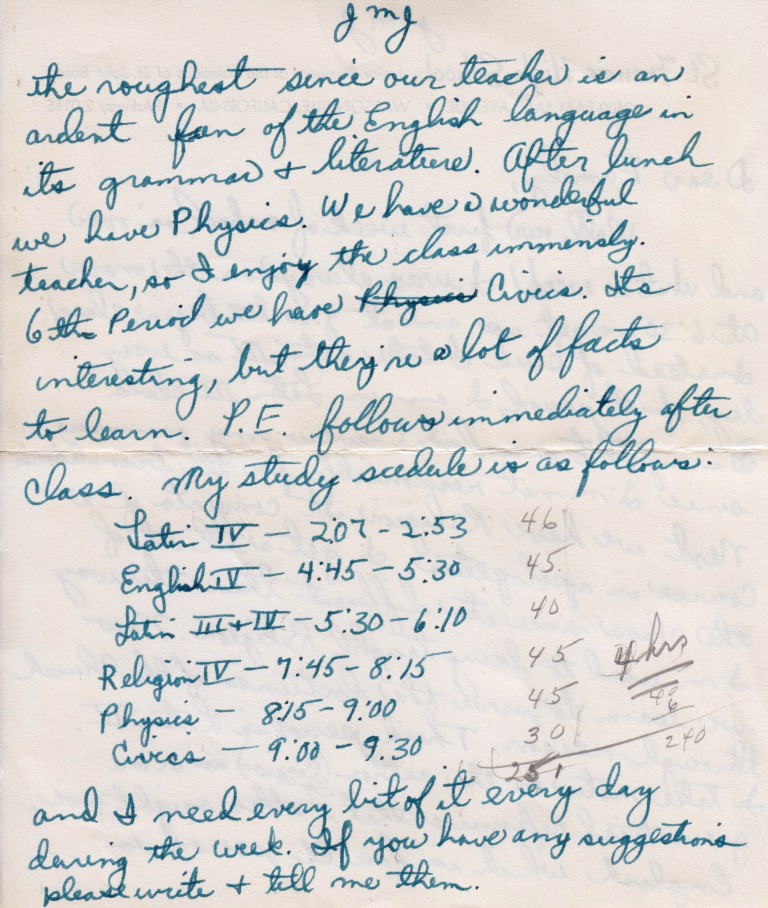 JMJ
the roughest since our teacher is an
ardent fan of the English language in
its grammar + literature. After lunch
we have Physics. We have a wonderful
teacher, so I enjoy the class immensly.
6th Period we have Physics Civics. Its
interesting, but they're a lot of facts
to learn. P.E. follows immediately after
class. My study scedule is as follows:
Latin IV — 2:07 - 2:53 46
English IV — 4:45 - 5:30 45
Latin III + IV — 5:30 - 6:10 40
Religion IV — 7:45 - 8:15 45 4 hrs
Physics — 8:15 - 9:00 45
Civics — 9:00 - 9:30 30 240
251
and I need every bit of it every day
during the week. If you have any suggestions
please write + tell me them.